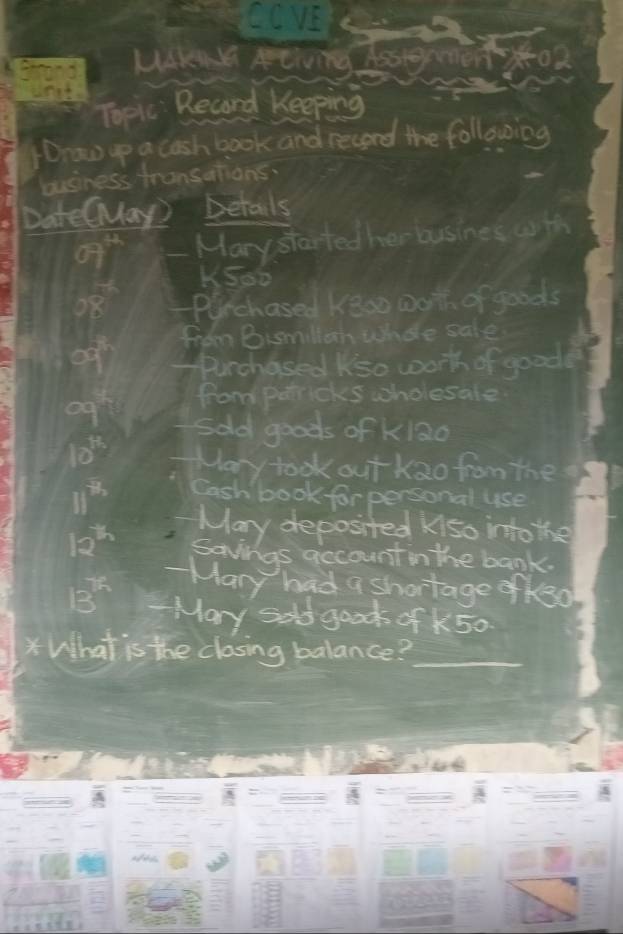 CCVE
Strand
Unit:
MAKING A Living Assignment # 02
Topic: Record Keeping
1. Draw up a cash book and record the following
business transations.
Date (May) Details
07th - Mary started her busines with
K500
08th - Purchased K300 worth of goods
from Bismillah whole sale.
09th - Purchased K50 worth of goods
from patricks wholesale.
09th - Sold goods of K120
10th - Mary took out K20 from the
Cash book for personal use
11th - Mary deposited K150 into the
savings account in the bank.
12th - Mary had a shortage of K30
13th - Mary sold goods of K50.
* What is the closing balance? ______